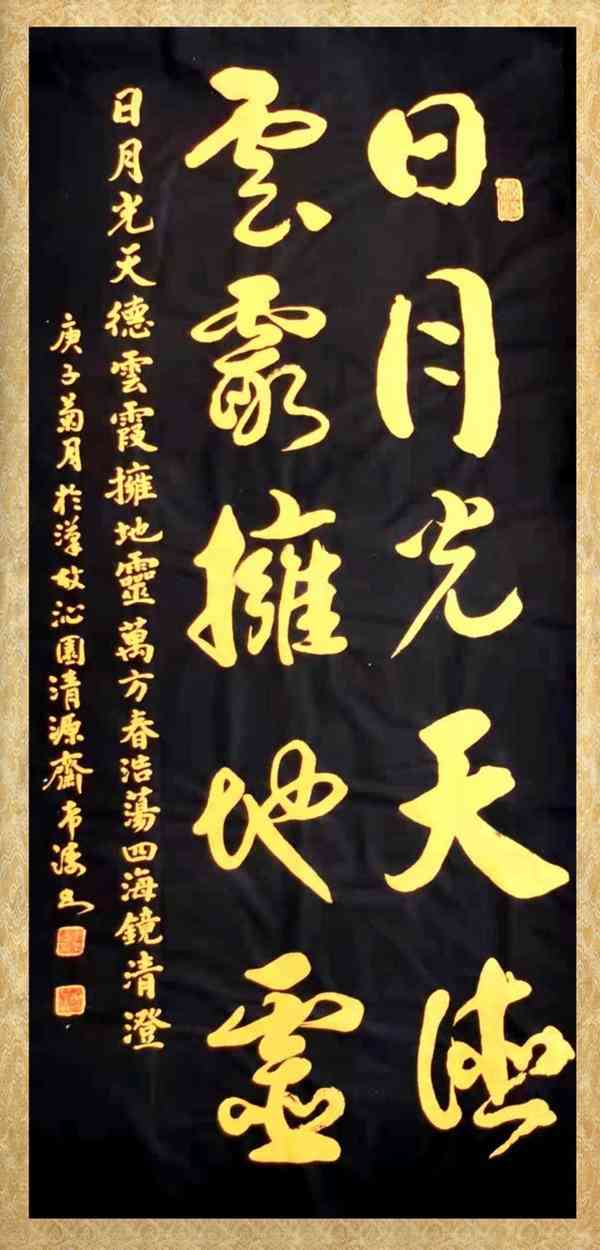 日月光天德
雲霞擁地靈
日月光天德雲霞擁地靈萬方春浩蕩四海鏡清澄
庚子菊月於漢故沁園清源齋韦